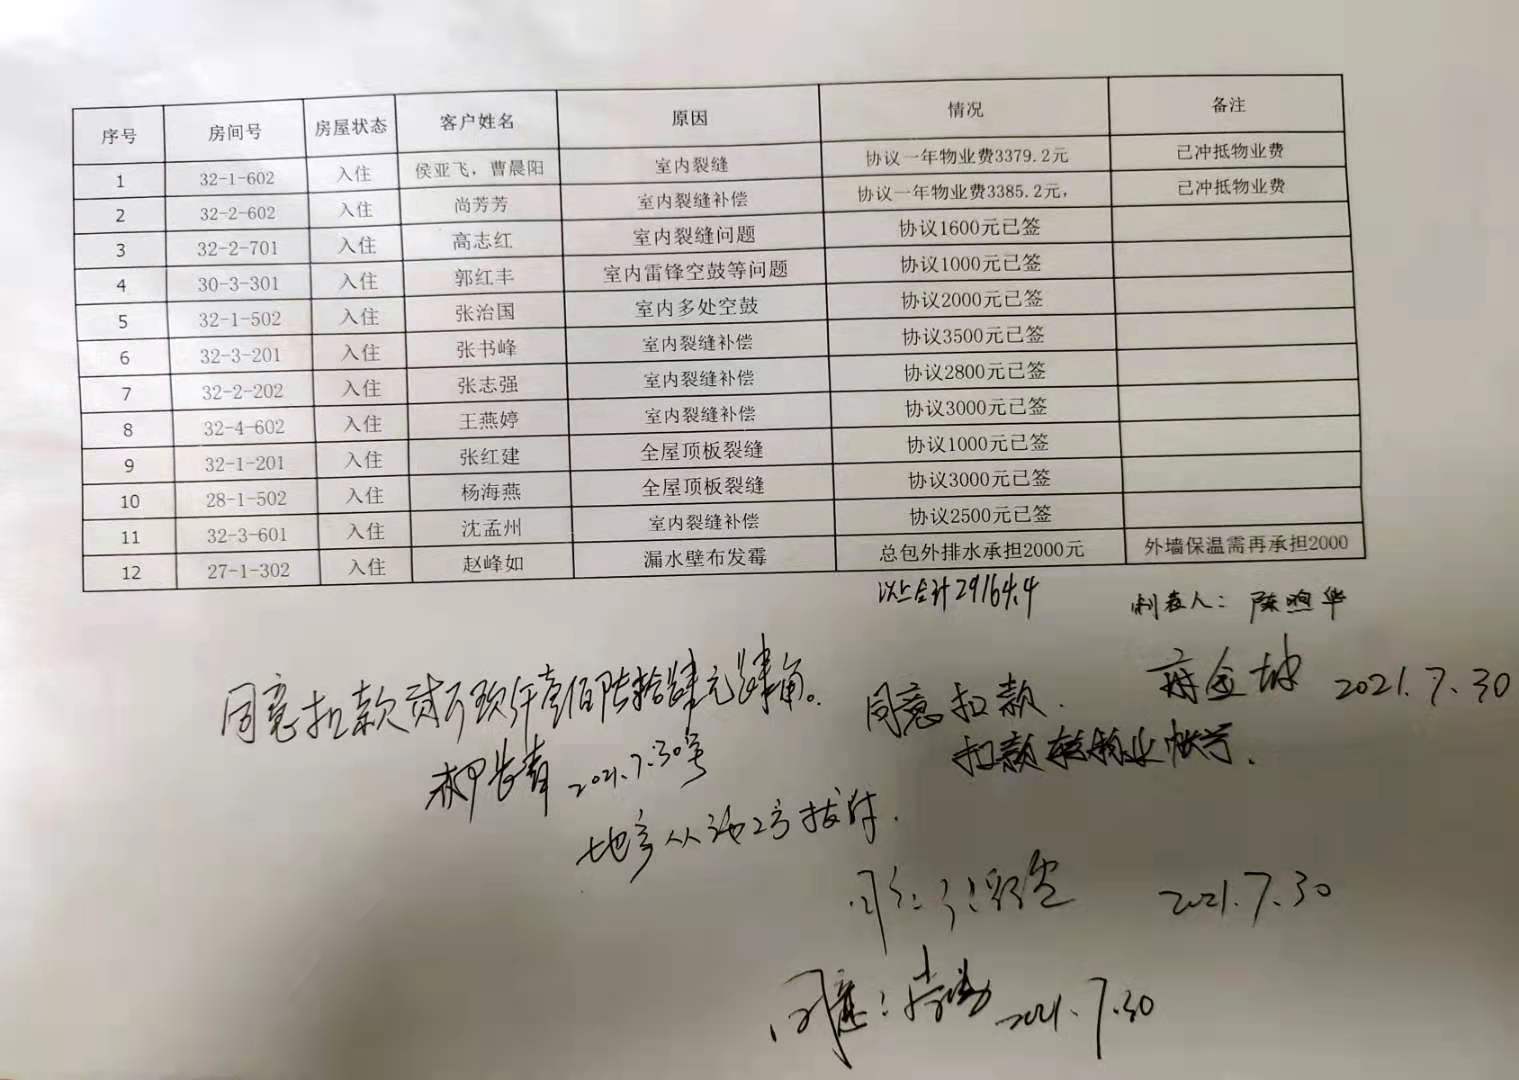 序号 房间号 房屋状态 客户姓名 原因 情况 备注
1 32-1-602 入住 侯亚飞，曹晨阳 室内裂缝 协议一年物业费3379.2元 已冲抵物业费
2 32-2-602 入住 尚芳芳 室内裂缝补偿 协议一年物业费3385.2元， 已冲抵物业费
3 32-2-701 入住 高志红 室内裂缝问题 协议1600元已签
4 30-3-301 入住 郭红丰 室内雷锋空鼓等问题 协议1000元已签
5 32-1-502 入住 张治国 室内多处空鼓 协议2000元已签
6 32-3-201 入住 张书峰 室内裂缝补偿 协议3500元已签
7 32-2-202 入住 张志强 室内裂缝补偿 协议2800元已签
8 32-4-602 入住 王燕婷 室内裂缝补偿 协议3000元已签
9 32-1-201 入住 张红建 全屋顶板裂缝 协议1000元已签
10 28-1-502 入住 杨海燕 全屋顶板裂缝 协议3000元已签
11 32-3-601 入住 沈孟州 室内裂缝补偿 协议2500元已签
12 27-1-302 入住 赵峰如 漏水壁布发霉 总包外排水承担2000元 外墙保温需再承担2000
以上合计29164.4
制表人：陈煦华
同意扣款贰万玖仟壹佰陆拾肆元肆角。
柳长青 2021.7.30号
同意扣款. 2021.7.30
扣款转物业帐号.
2021.7.30
同意： 2021.7.30